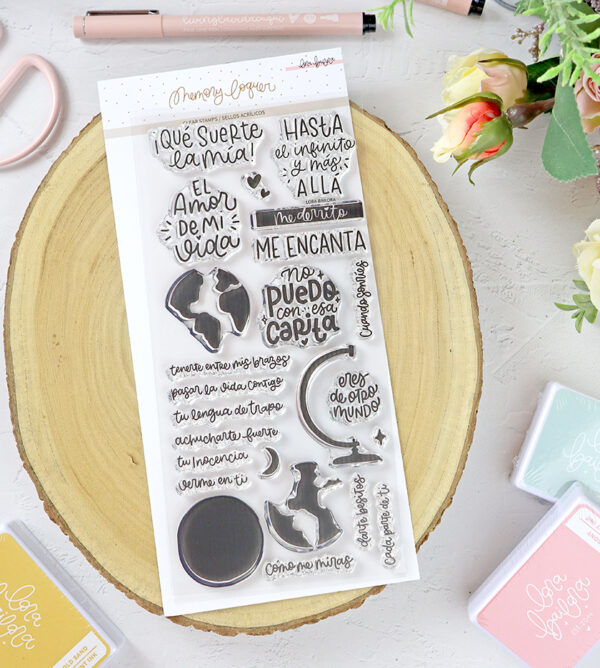 Memory Loquer
CLEAR STAMPS / SELLOS ACRÍLICOS
LORA BAILORA
¡QUÉ SUERTE
la mía!
HASTA
el infinito
y más
ALLÁ
EL
Amor
DE MI
vida
me derrito
ME ENCANTA
NO
PUEDO
con esa
CARITA
Cuando sonríes
tenerte entre mis brazos
pasar la vida contigo
tu lengua de trapo
achucharte fuerte
tu inocencia
verme en ti
eres
DE OTRO
MUNDO
darte besitos
Cada parte de ti
cómo me miras
lora
bailora
lora
bailora
lora
bailora